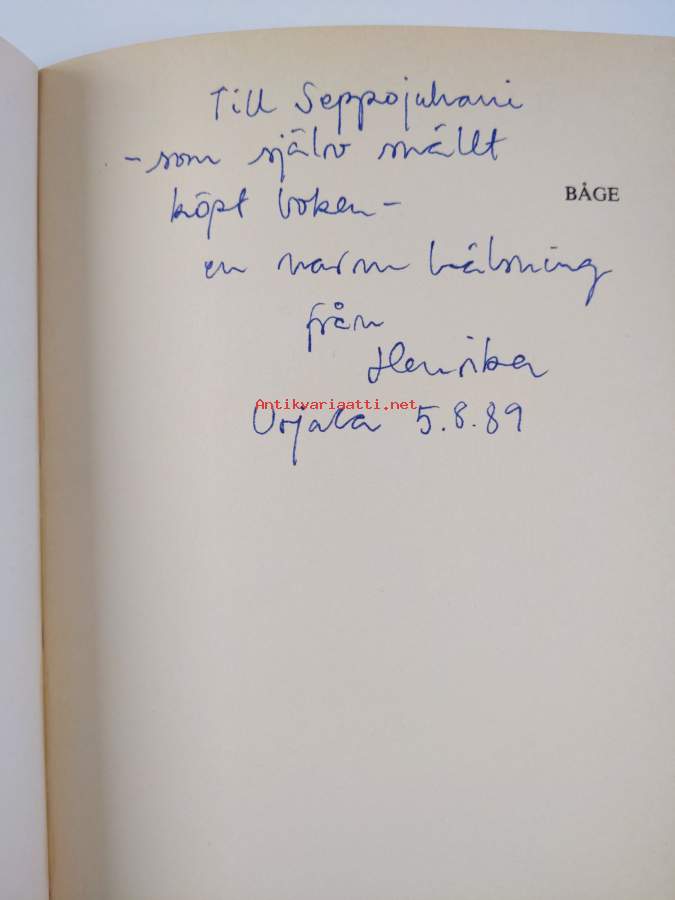 Till Seppojuhani
- som själv snällt
köpt boken -
BÅGE
en varm hälsning
från
Henrika
Antikvariaatti.net
Urjala 5.8.89